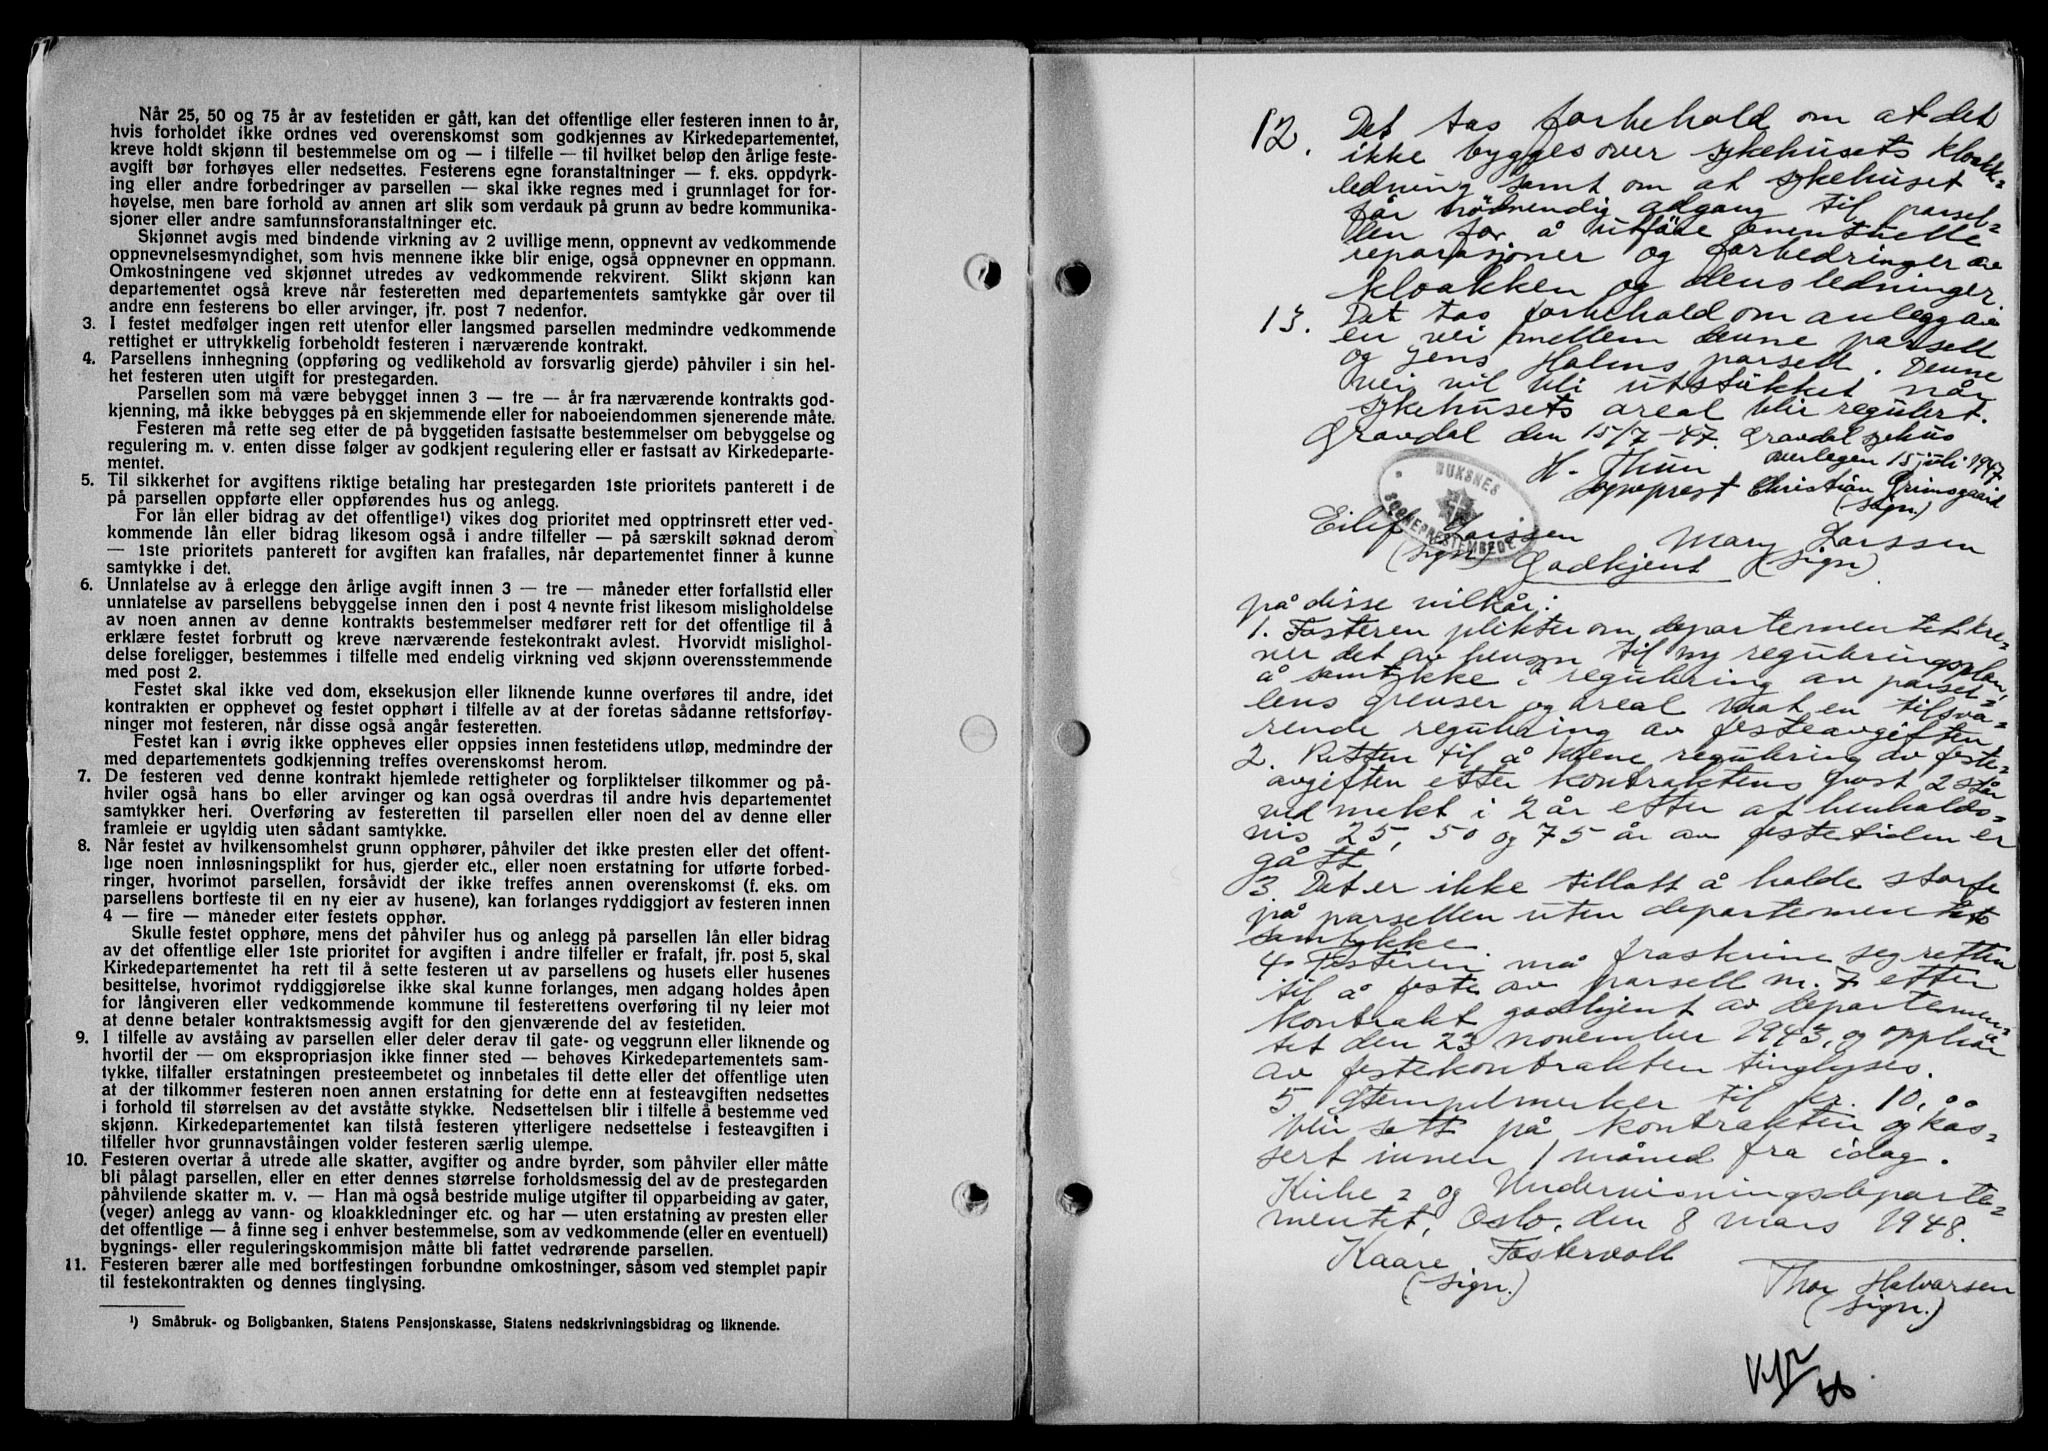 Når 25, 50 og 75 år av festetiden er gått, kan det offentlige eller festeren innen to år,
hvis forholdet ikke ordnes ved overenskomst som godkjennes av Kirkedepartementet,
kreve holdt skjønn til bestemmelse om og — i tilfelle — til hvilket beløp den årlige feste-
avgift bør forhøyes eller nedsettes. Festerens egne foranstaltninger — f. eks. oppdyrk-
ing eller andre forbedringer av parsellen — skal ikke regnes med i grunnlaget for for-
høyelse, men bare forhold av annen art slik som verdauk på grunn av bedre kommunika-
sjoner eller andre samfunnsforanstaltninger etc.
Skjønnet avgis med bindende virkning av 2 uvillige menn, oppnevnt av vedkommende
oppnevnelsesmyndighet, som hvis mennene ikke blir enige, også oppnevner en oppmann.
Omkostningene ved skjønnet utredes av vedkommende rekvirent. Slikt skjønn kan
departementet også kreve når festeretten med departementets samtykke går over til
andre enn festerens bo eller arvinger, jfr. post 7 nedenfor.
3. I festet medfølger ingen rett utenfor eller langsmed parsellen medmindre vedkommende
rettighet er uttrykkelig forbeholdt festeren i nærværende kontrakt.
4. Parsellens innhegning (oppføring og vedlikehold av forsvarlig gjerde) påhviler i sin hel-
het festeren uten utgift for prestegarden.
Parsellen som må være bebygget innen 3 — tre — år fra nærværende kontrakts god-
kjenning, må ikke bebygges på en skjemmende eller for naboeiendommen sjenerende måte.
Festeren må rette seg etter de på byggetiden fastsatte bestemmelser om bebyggelse og
regulering m. v. enten disse følger av godkjent regulering eller er fastsatt av Kirkedeparte-
mentet.
5. Til sikkerhet for avgiftens riktige betaling har prestegarden 1ste prioritets panterett i de
på parsellen oppførte eller oppførendes hus og anlegg.
For lån eller bidrag av det offentlige¹) vikes dog prioritet med opptrinsrett etter ved-
kommende lån eller bidrag likesom også i andre tilfeller — på særskilt søknad derom
— 1ste prioritets panterett for avgiften kan frafalles, når departementet finner å kunne
samtykke i det.
6. Unnlatelse av å erlegge den årlige avgift innen 3 — tre — måneder etter forfallstid eller
unnlatelse av parsellens bebyggelse innen den i post 4 nevnte frist likesom misligholdelse
av noen annen av denne kontrakts bestemmelser medfører rett for det offentlige til å
erklære festet forbrutt og kreve nærværende festekontrakt avlest. Hvorvidt misligho­l-
delse foreligger, bestemmes i tilfelle med endelig virkning ved skjønn overensstemmende
med post 2.
Festet skal ikke ved dom, eksekusjon eller liknende kunne overføres til andre, idet
kontrakten er opphevet og festet opphørt i tilfelle av at der foretas sådanne rettsforføy-
ninger mot festeren, når disse også angår festeretten.
Festet kan i øvrig ikke oppheves eller oppsies innen festetidens utløp, medmindre der
med departementets godkjenning treffes overenskomst herom.
7. De festeren ved denne kontrakt hjemlede rettigheter og forpliktelser tilkommer og på-
hviler også hans bo eller arvinger og kan også overdras til andre hvis departementet
samtykker heri. Overføring av festeretten til parsellen eller noen del av denne eller
framleie er ugyldig uten sådant samtykke.
8. Når festet av hvilkensomhelst grunn opphører, påhviler det ikke presten eller det offent-
lige noen innløsningsplikt for hus, gjerder etc., eller noen erstatning for utførte forbed-
ringer, hvorimot parsellen, forsåvidt der ikke treffes annen overenskomst (f. eks. om
parsellens bortfeste til en ny eier av husene), kan forlanges ryddiggjort av festeren innen
4 — fire — måneder etter festets opphør.
Skulle festet opphøre, mens det påhviler hus og anlegg på parsellen lån eller bidrag
av det offentlige eller 1ste prioritet for avgiften i andre tilfeller er frafalt, jfr. post 5, skal
Kirkedepartementet ha rett til å sette festeren ut av parsellens og husets eller husenes
besittelse, hvorimot ryddiggjørelse ikke skal kunne forlanges, men adgang holdes åpen
for långiveren eller vedkommende kommune til festerettens overføring til ny leier mot
at denne betaler kontraktsmessig avgift for den gjenværende del av festetiden.
9. I tilfelle av avståing av parsellen eller deler derav til gate- og veggrunn eller liknende og
hvortil der — om ekspropriasjon ikke finner sted — behøves Kirkedepartementets sam-
tykke, tilfaller erstatningen presteembetet og innbetales til dette eller det offentlige uten
at der tilkommer festeren noen annen erstatning for dette enn at festeavgiften nedsettes
i forhold til størrelsen av det avståtte stykke. Nedsettelsen blir i tilfelle å bestemme ved
skjønn. Kirkedepartementet kan tilstå festeren ytterligere nedsettelse i festeavgiften i
tilfeller hvor grunnavståingen volder festeren særlig ulempe.
10. Festeren overtar å utrede alle skatter, avgifter og andre byrder, som påhviler eller måtte
bli pålagt parsellen, eller en etter dennes størrelse forholdsmessig del av de prestegarden
påhvilende skatter m. v. — Han må også bestride mulige utgifter til opparbeiding av gater,
(veger) anlegg av vann- og kloakkledninger etc. og har — uten erstatning av presten eller
det offentlige — å finne seg i enhver bestemmelse, som av vedkommende (eller en eventuell)
bygnings- eller reguleringskommisjon måtte bli fattet vedrørende parsellen.
11. Festeren bærer alle med bortfestingen forbundne omkostninger, såsom ved stemplet papir
til festekontrakten og dennes tinglysing.
¹) Småbruk- og Boligbanken, Statens Pensjonskasse, Statens nedskrivningsbidrag og liknende.
12. Det tas forbehold om at det
ikke bygges over sykehusets kloakk-
ledning samt om at sykehuset
får nødvendig adgang til parsel-
len for å utføre eventuelle
reparasjoner og forbedringer av
kloakken og dens ledninger.
13. Det tas forbehold om anlegg av
en vei mellem denne parsell
og Jens Halens parsell. Denne
vei vil bli utstukket når
sykehusets areal blir regulert.
Gravdal den 15/7-47. Gravdal sykehus
overlegen 15 juli 1947
H. Thun Christian Grimsgaard
sogneprest (sign.)
BUKSNES
SOGNEPRESTEMBEDE
Eilif Larssen Mary Larssen
(sign) Godkjent (sign)
på disse vilkår:
1. Festeren plikter om departementet kre-
ver det av hensyn til ny reguleringsplan,
å samtykke i regulering av parsel-
lens grenser og areal mot en tilsva-
rende regulering av festeavgiften.
2. Retten til å kreve regulering av feste-
avgiften etter kontraktens post 2 står
ved makt i 2 år etter at henholds-
vis 25, 50 og 75 år av festetiden er
gått.
3. Det er ikke tillatt å holde storfe
på parsellen uten departementets
samtykke.
4. Festeren må fraskrive seg retten
til å feste av parsell nr. 7 etter
kontrakt godkjent av departemen-
tet den 23 november 1943, og opphør
av festekontrakten tinglyses.
5. Stempelmerker til kr. 10,00
blir sett på kontrakten og kas-
sert innen 1 måned fra idag.
Kirke- og Undervisningsdeparte-
mentet, Oslo, den 8 mars 1948.
Kaare Fostervoll
(sign.)
Thor Halvorsen
(sign.)